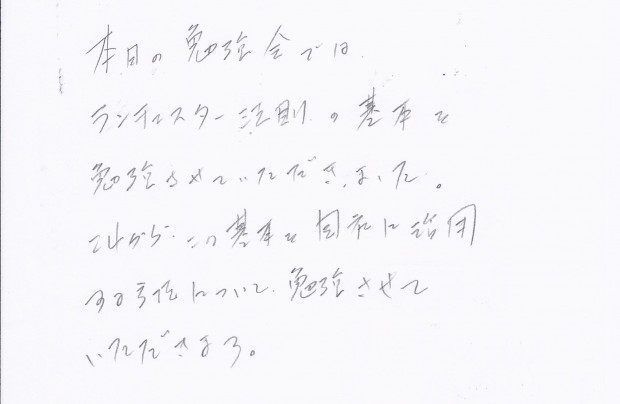 本日の勉強会では
ランチェスター法則の基本を
勉強させていただきました。
これから、この基本を自社に活用
する事について、勉強させて
いただきます。